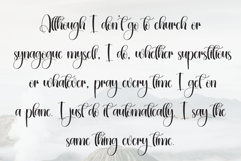 Although I don't go to church or
synagogue myself, I do, whether superstitious
or whatever, pray every time I get on
a plane. I just do it automatically. I say the
same thing every time.